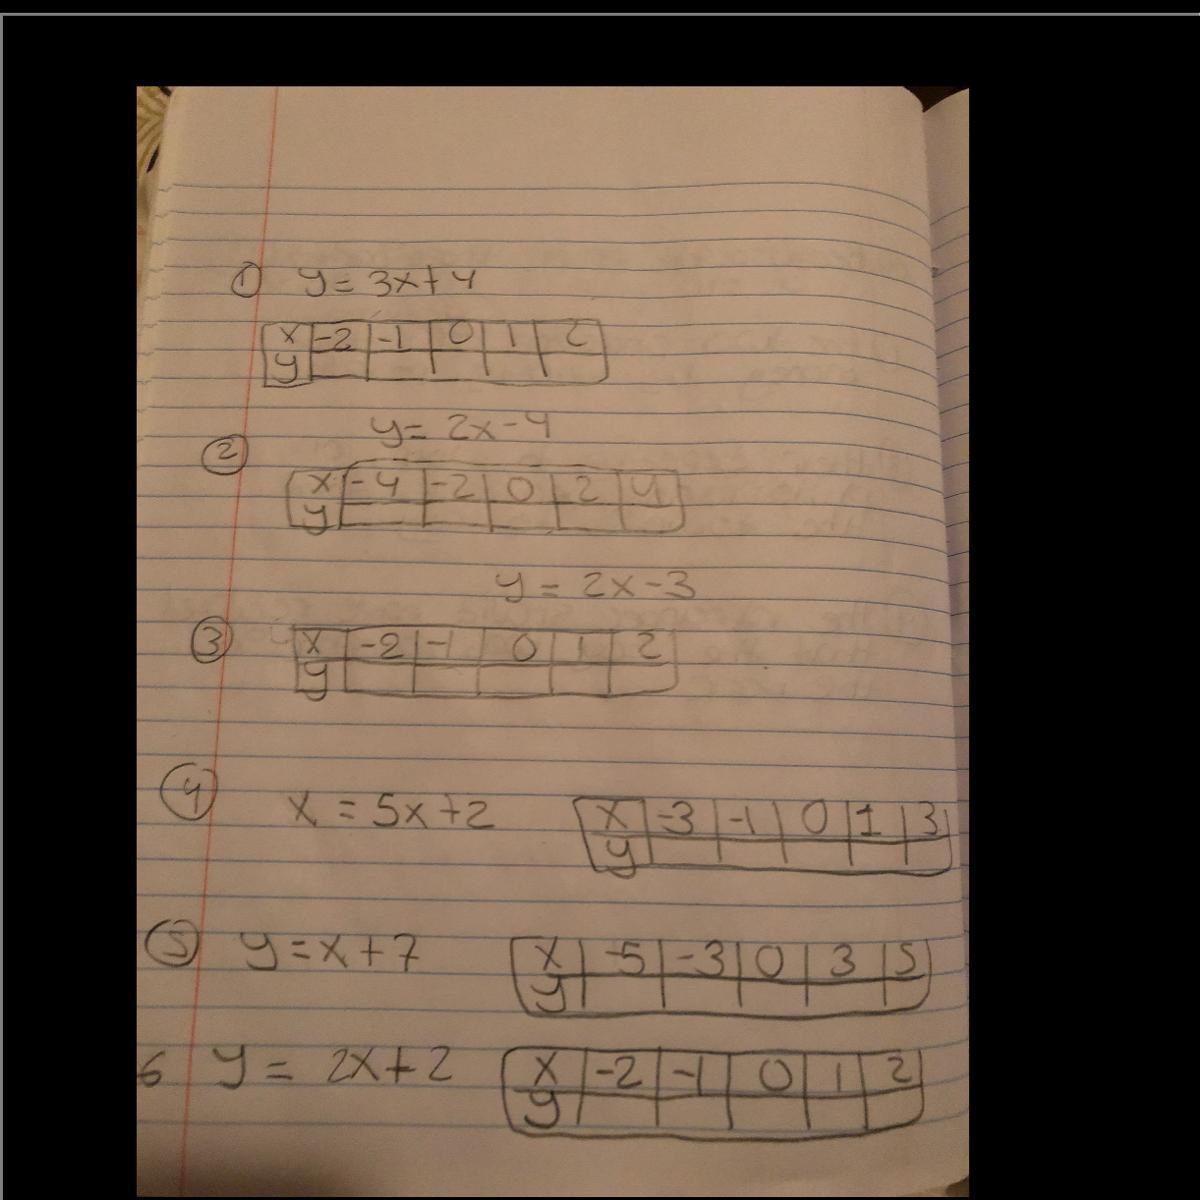 ① y = 3x+4
x -2 -1 0 1 2
y
y = 2x-4
②
x -4 -2 0 2 4
y
y = 2x-3
③
x -2 -1 0 1 2
y
④ x = 5x+2 x -3 -1 0 1 3
y
⑤ y = x+7 x -5 -3 0 3 5
y
6 y = 2x+2 x -2 -1 0 1 2
y